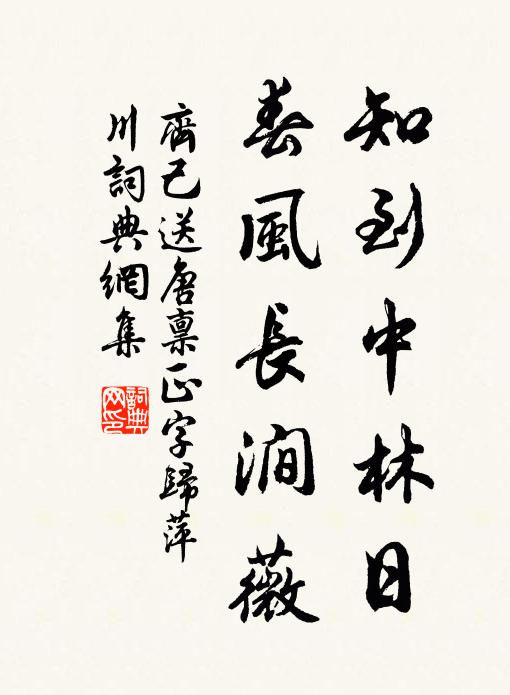 知到中林日
春風長澗薇
齊己送唐禀正字歸萍
川詞典網集
詞典网印